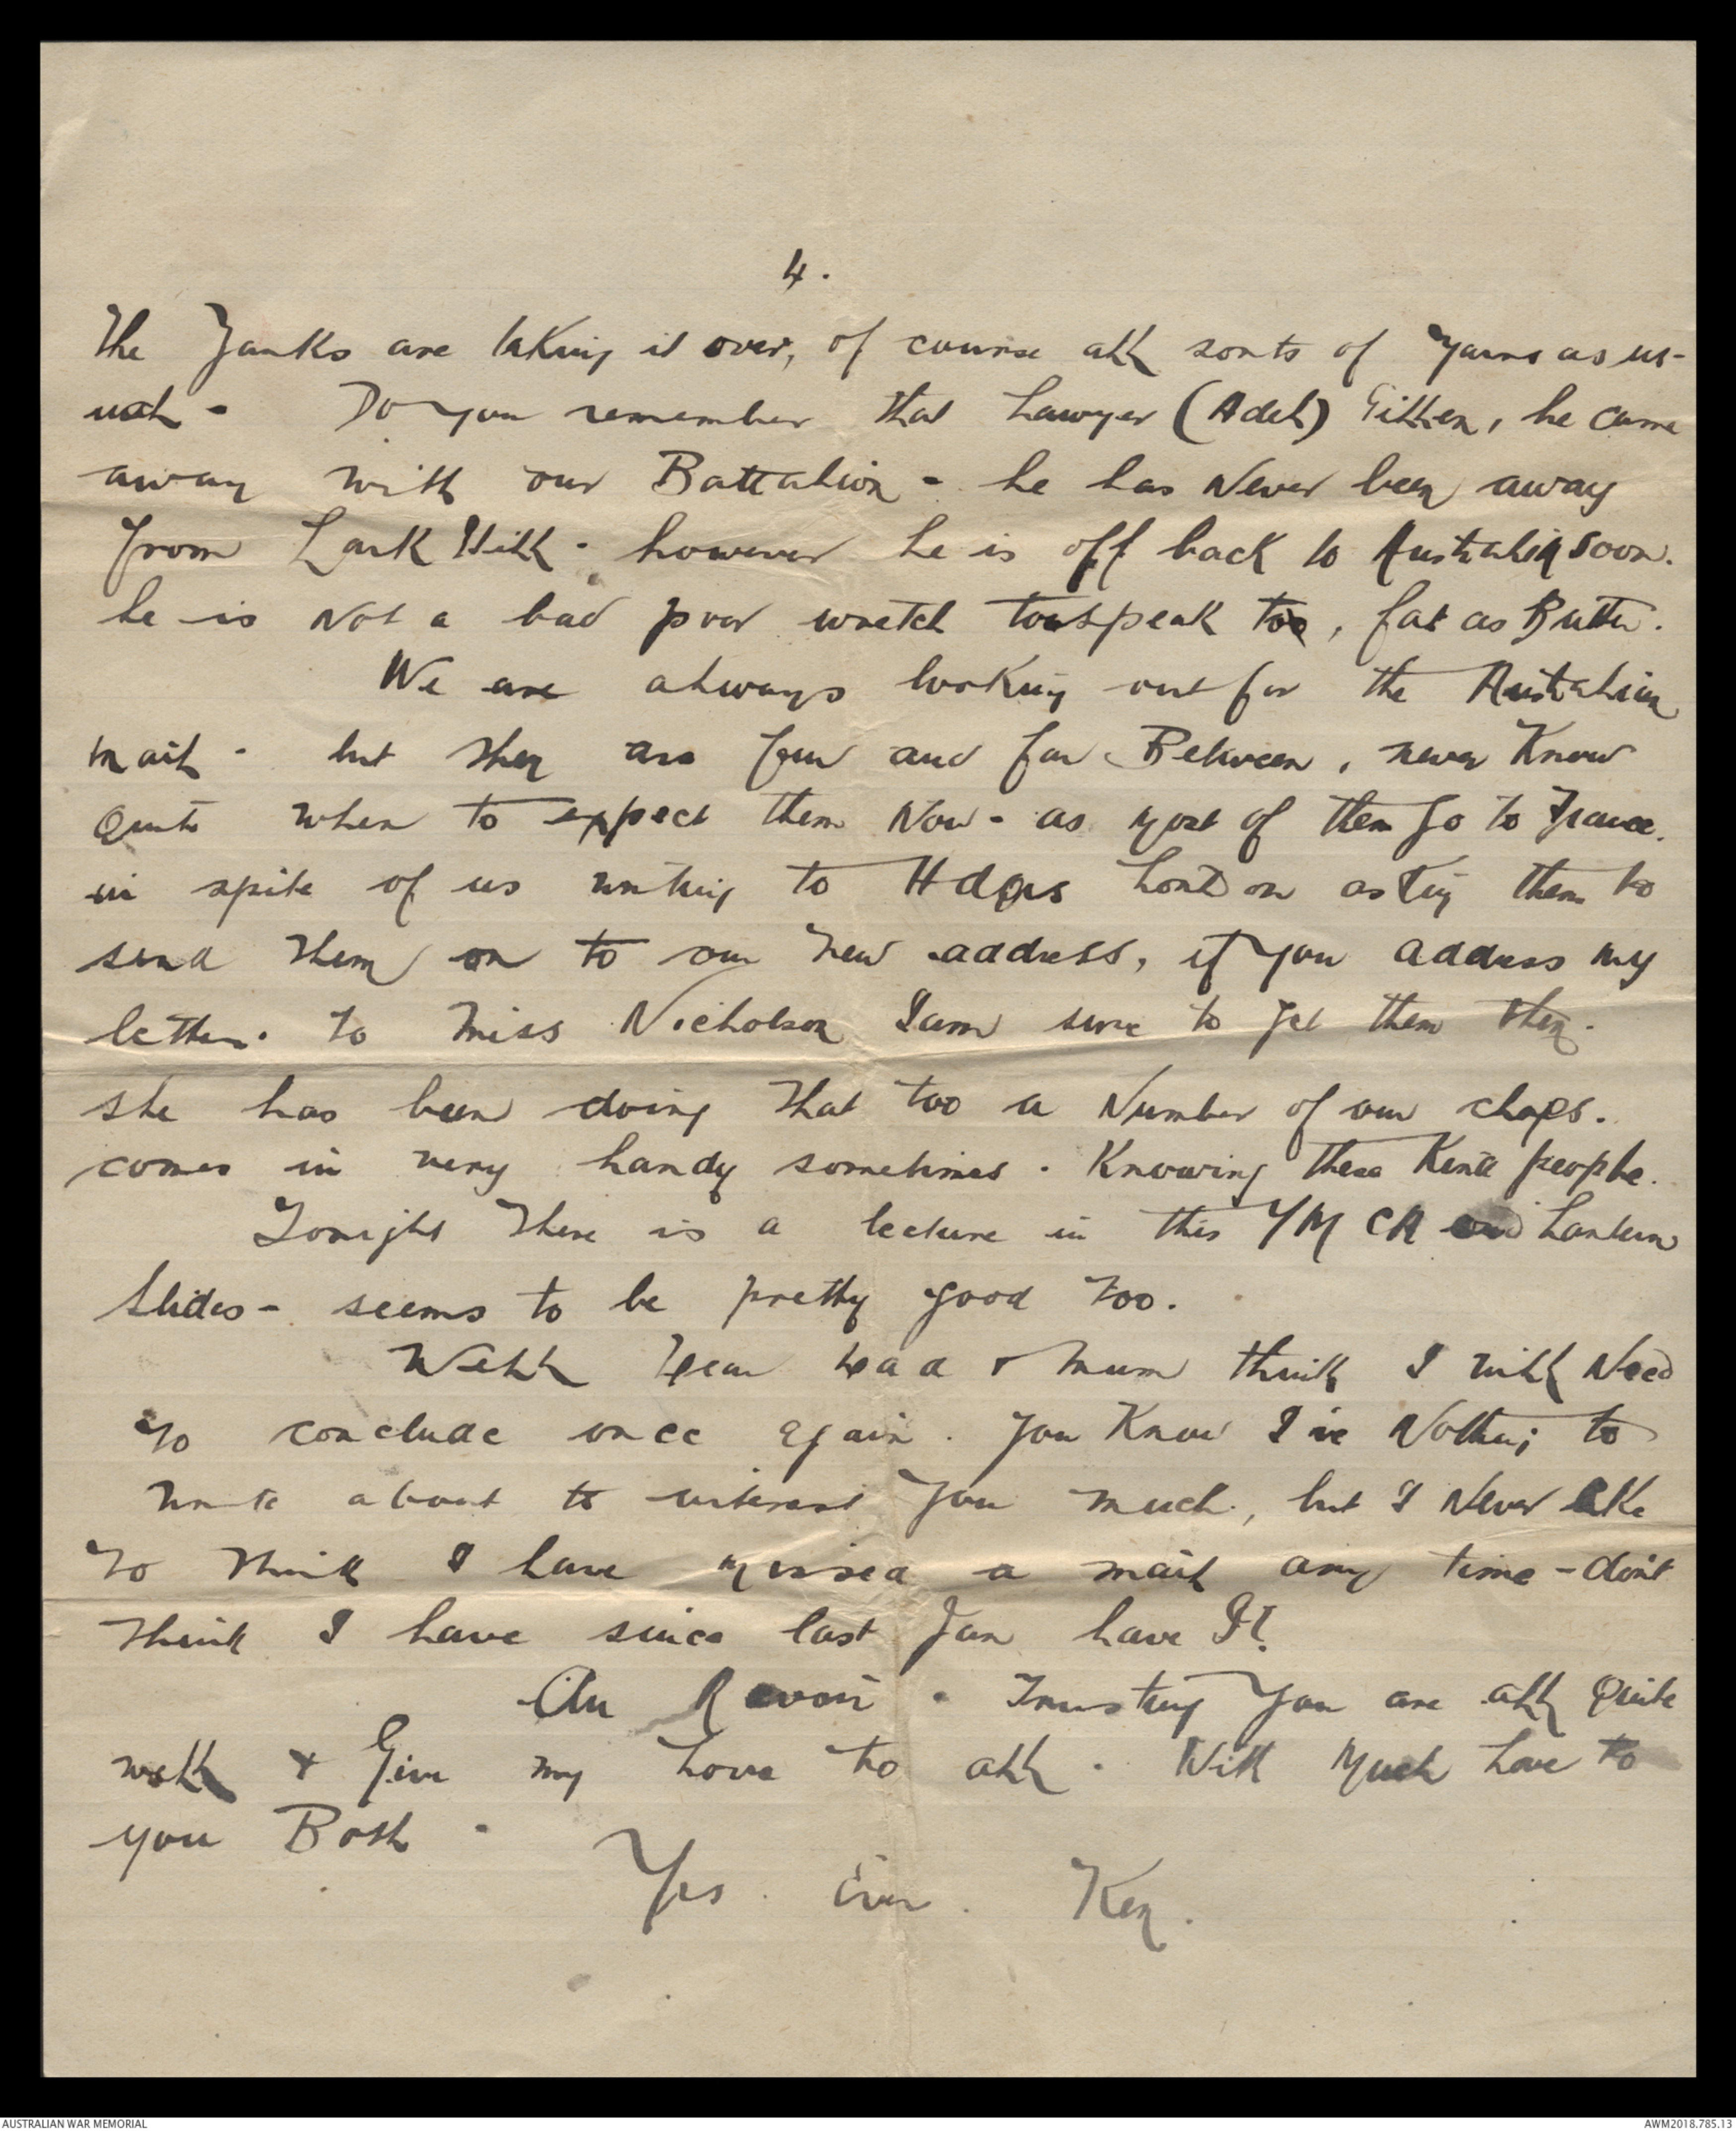 4.
The Yanks are taking it over, of course all sorts of yarns as us-
ual - Do you remember that Lawyer (Adel) he came
away with our Battalion - he has Never been away
from Lark Hill - however he is off back to Australia soon.
he is Not a bad poor wretch to speak too, fat as Butter.
We are always looking out for the Australian
mail - but they are few and far Between, never Know
Quite when to expect them Now - as most of them go to France.
in spite of us writing to Hdqrs London asking them to
send them on to our new address, if you address my
letters to Miss Nicholson I am sure to get them then.
she has been doing that too a Number of our chaps.
comes in very handy sometimes. Knowing these people.
Tonight There is a lecture in this YMCA and Lantern
Slides - seems to be pretty good too.
Well Dear Dad & Mum think I will Need
to conclude once again. You Know I've Nothing to
write about to interest you much, but I Never like
to think I have missed a mail any time - don't
think I have since last Jan have I?
Au Revoir - Trusting you are all Quite
well & Give my Love to all. With Much Love to
you Both -
Yrs. Ever. Ken.
AUSTRALIAN WAR MEMORIAL
AWM2018.785.13